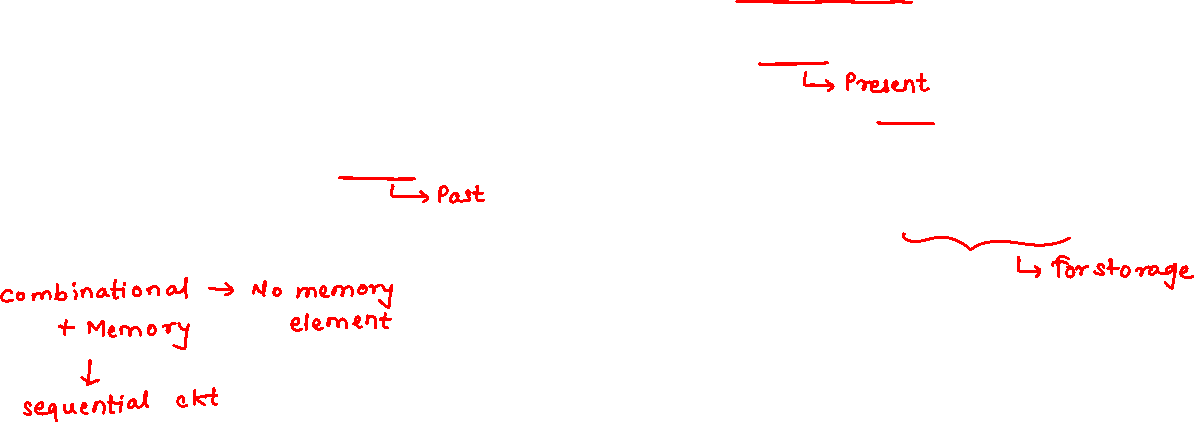 Present
Past
For storage
Combinational → No memory
+ Memory element
↓
sequential ckt